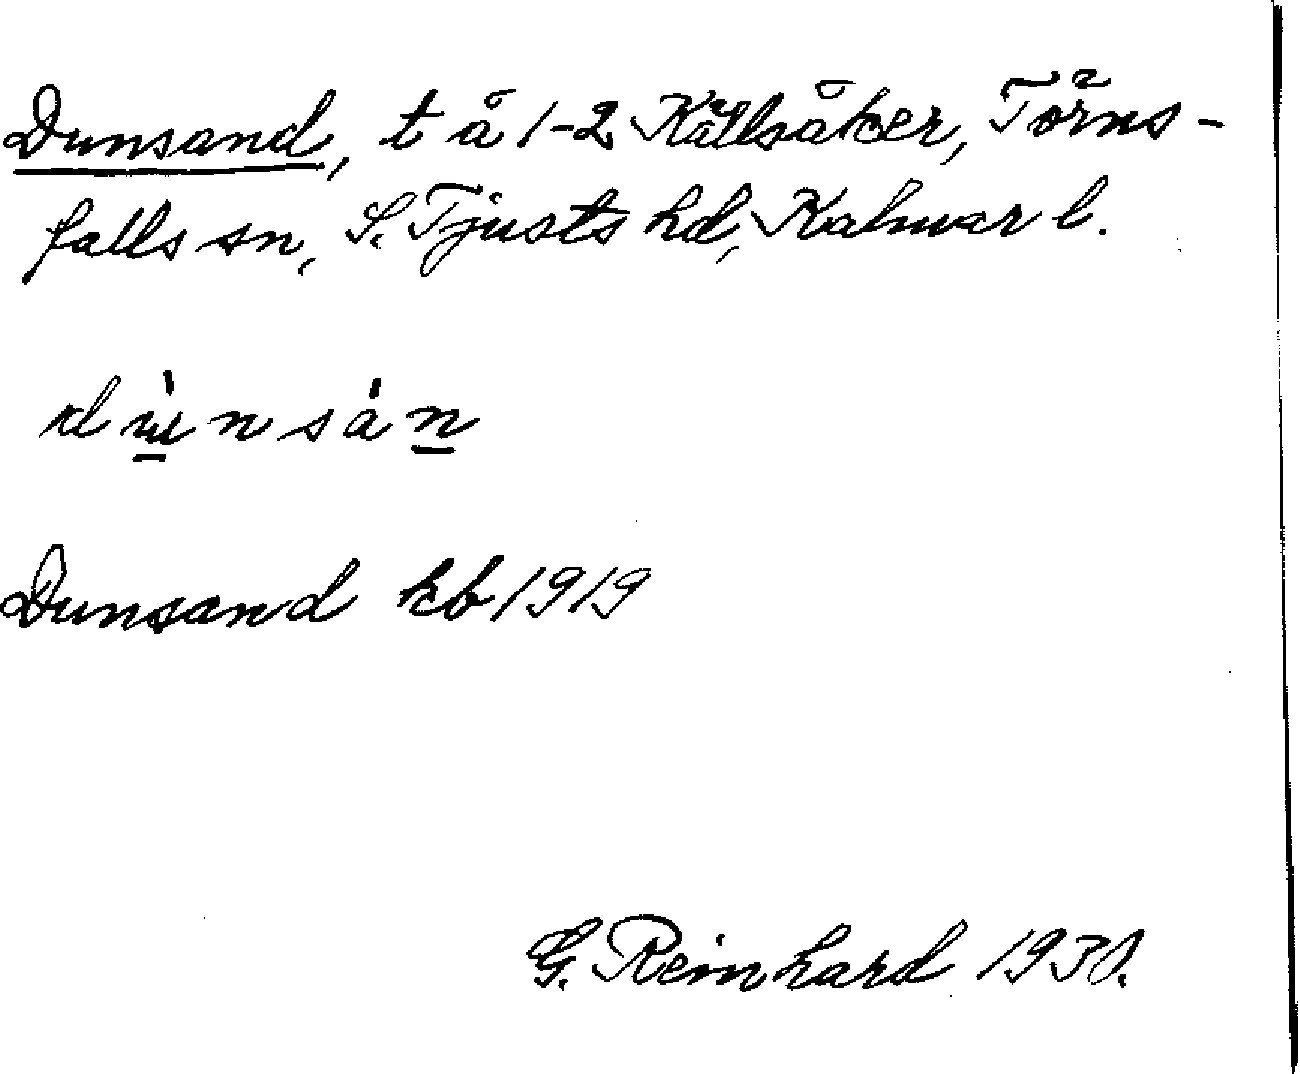 Dunsand, t å 1-2 Källsåker, Törns-
falls sn, S. Tjusts hd, Kalmar l.
Dunsand kb 1919
G. Reinhard 1930.